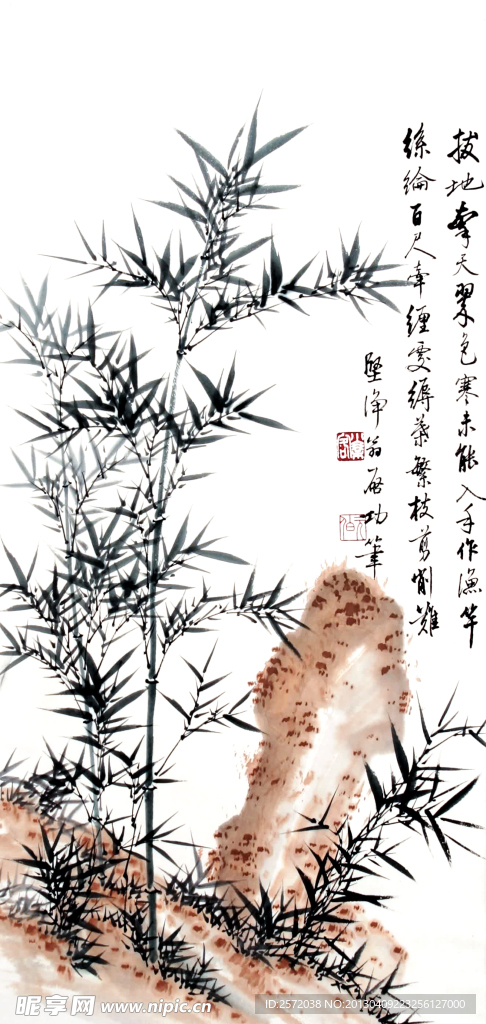 拔地牽天翠色寒未能入手作漁竿
絲綸百尺牽纏處縟葉繁枝剪削難
堅淨翁啟功筆
昵享网 www.nipic.cn
ID:2572038 NO:20130409223256127000